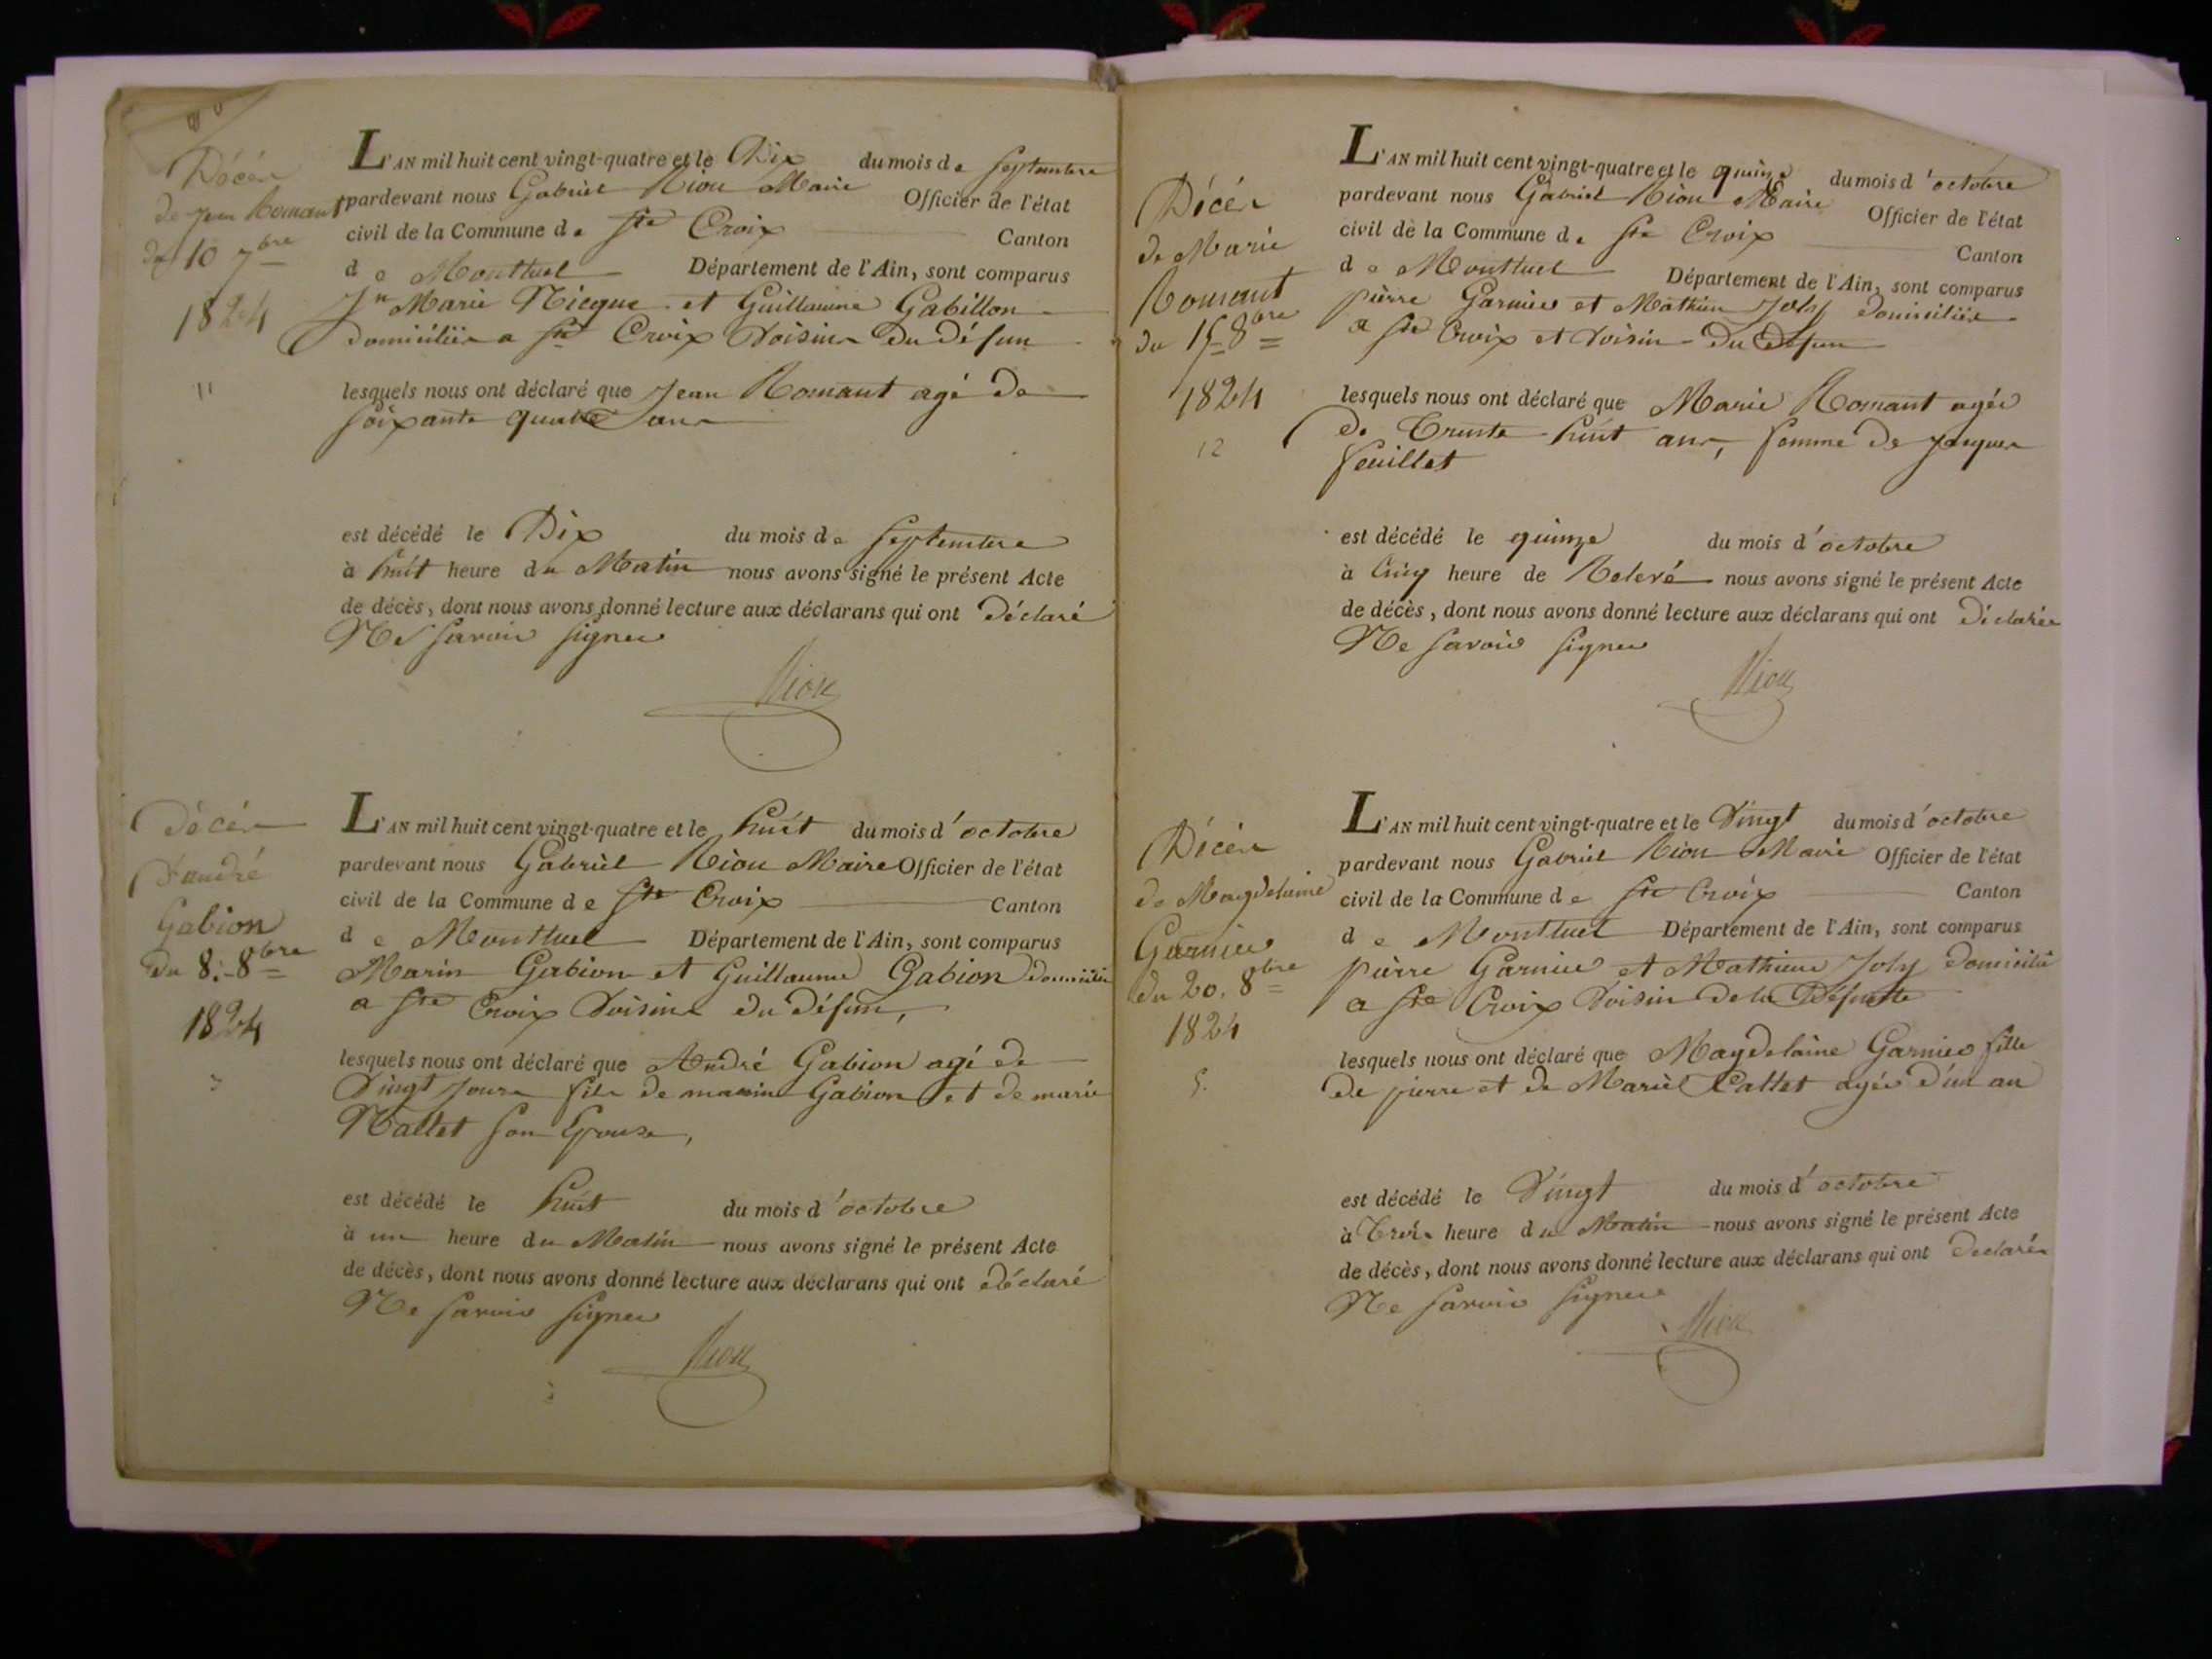 Décès
de Jean Romant
du 10 7bre
1824
11
L'AN mil huit cent vingt-quatre et le Dix du mois de Septembre
pardevant nous Gabriel Riou Maire Officier de l'état
civil de la Commune de Ste Croix Canton
de Montluel Département de l'Ain, sont comparus
Jn Marie Nicque et Guillaume Gabillon
domiciliés a Ste Croix Voisins du défun
lesquels nous ont déclaré que Jean Romant agé de
soixante quatre ans
est décédé le Dix du mois de Septembre
à huit heure du Matin nous avons signé le présent Acte
de décès, dont nous avons donné lecture aux déclarans qui ont déclaré
Ne Savoir Signer
Riou
Décès
d'andré
Gabion
du 8. 8bre
1824
L'AN mil huit cent vingt-quatre et le huit du mois d'octobre
pardevant nous Gabriel Riou Maire Officier de l'état
civil de la Commune de Ste Croix Canton
de Montluel Département de l'Ain, sont comparus
Marin Gabion et Guillaume Gabion domiciliés
a Ste Croix Voisins du défun,
lesquels nous ont déclaré que André Gabion agé de
Vingt Jours fils de marin Gabion et de marie
Nallet son Epouse,
est décédé le huit du mois d'octobre
à un heure du Matin nous avons signé le présent Acte
de décès, dont nous avons donné lecture aux déclarans qui ont déclaré
Ne Savoir Signer
Riou
Décès
de Marie
Romant
du 15 8bre
1824
12
L'AN mil huit cent vingt-quatre et le quinze du mois d'octobre
pardevant nous Gabriel Riou Maire Officier de l'état
civil de la Commune de Ste Croix Canton
de Montluel Département de l'Ain, sont comparus
pierre Garnier et Mathieu Joly domiciliés
a Ste Croix et Voisin du défun
lesquels nous ont déclaré que Marie Romant agée
de Trente huit ans, femme de Jaques
feuillet
est décédé le quinze du mois d'octobre
à Cinq heure de Relevé nous avons signé le présent Acte
de décès, dont nous avons donné lecture aux déclarans qui ont déclarés
Ne Savoir Signer
Riou
Décès
de Magdelaine
Garnier
du 20. 8bre
1824
5.
L'AN mil huit cent vingt-quatre et le Vingt du mois d'octobre
pardevant nous Gabriel Riou Maire Officier de l'état
civil de la Commune de Ste Croix Canton
de Montluel Département de l'Ain, sont comparus
pierre Garnier et Mathieu Joly domicilié
a Ste Croix Voisin de la Défunte
lesquels nous ont déclaré que Magdelaine Garnier fille
de pierre et de Marie Callet agée d'un an
est décédé le Vingt du mois d'octobre
à Trois heure du Matin nous avons signé le présent Acte
de décès, dont nous avons donné lecture aux déclarans qui ont declarés
Ne Savoir Signer
Riou